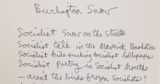 Burlington Snow
Socialist Snow on the streets
Socialist talk in the Maverick Bookstore
Socialist kids sucking socialist lollipops
Socialist poetry in socialist mouths
— aren't the birds frozen socialists?